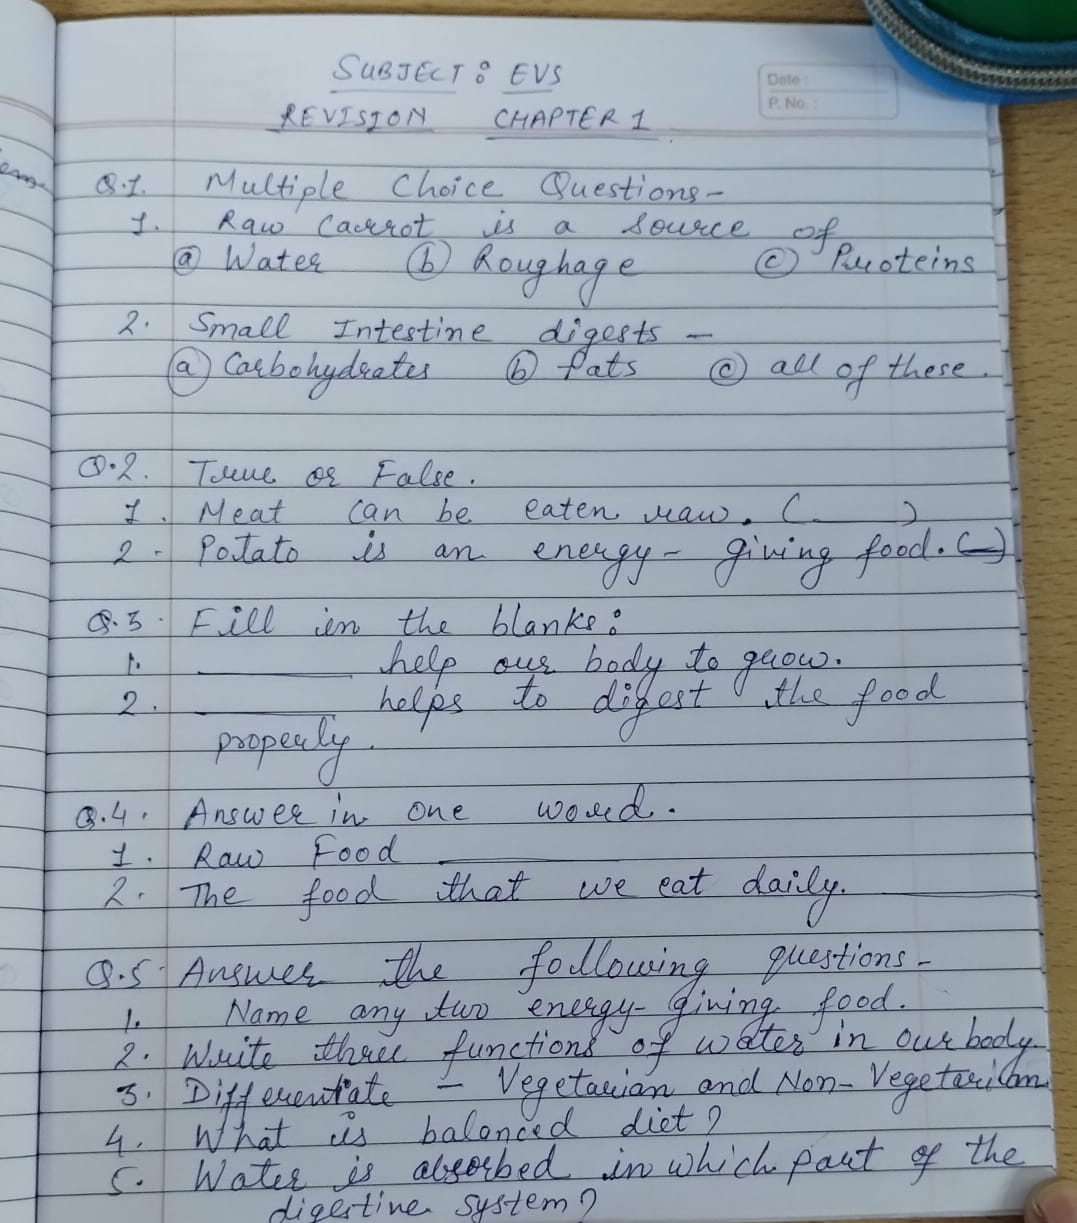 SUBJECT : EVS
Date :
P. No. :
REVISION CHAPTER 1
Q.1. Multiple Choice Questions -
1. Raw Carrot is a source of
(a) Water (b) Roughage (c) Proteins
2. Small Intestine digests -
(a) Carbohydrates (b) fats (c) all of these.
Q.2. True or False.
1. Meat can be eaten raw. (___)
2. Potato is an energy-giving food. (__)
Q.3. Fill in the blanks :
1. ________ help our body to grow.
2. ________ helps to digest the food
properly.
Q.4. Answer in one word.
1. Raw Food ________
2. The food that we eat daily. ________
Q.5. Answer the following questions -
1. Name any two energy-giving food.
2. Write three functions of water in our body.
3. Differentiate - Vegetarian and Non-Vegetarian
4. What is balanced diet?
5. Water is absorbed in which part of the
digestive system?